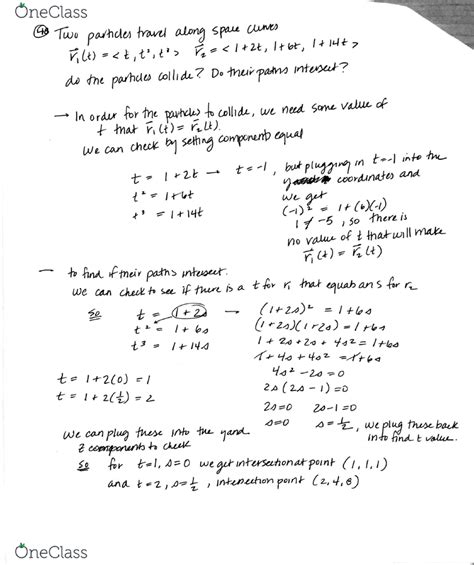 OneClass
48 Two particles travel along space curves
r₁(t) = <t, t², t³> r₂ = <1+2t, 1+6t, 1+14t>
do the particles collide? Do their paths intersect?
→ In order for the particles to collide, we need some value of
t that r₁(t) = r₂(t).
We can check by setting components equal
t = 1+2t → t=-1, but plugging in t=-1 into the
t² = 1+6t coordinates and
we get
t³ = 1+14t (-1)² = 1+(6)(-1)
1 ≠ -5, so there is
no value of t that will make
r₁(t) = r₂(t)
— to find if their paths intersect.
We can check to see if there is a t for r₁ that equals an s for r₂
So t = 1+2s → (1+2s)² = 1+6s
t² = 1+6s (1+2s)(1+2s) = 1+6s
t³ = 1+14s 1+2s+2s+4s² = 1+6s
1+4s+4s² = 1+6s
4s²-2s=0
t = 1+2(0) = 1 2s(2s-1)=0
t = 1+2(½) = 2 2s=0 2s-1=0
s=0 s=½, we plug these back
in to find t value.
We can plug these into the y and
z components to check
So for t=1, s=0 we get intersection at point (1,1,1)
and t=2, s=½, intersection point (2,4,8)
OneClass